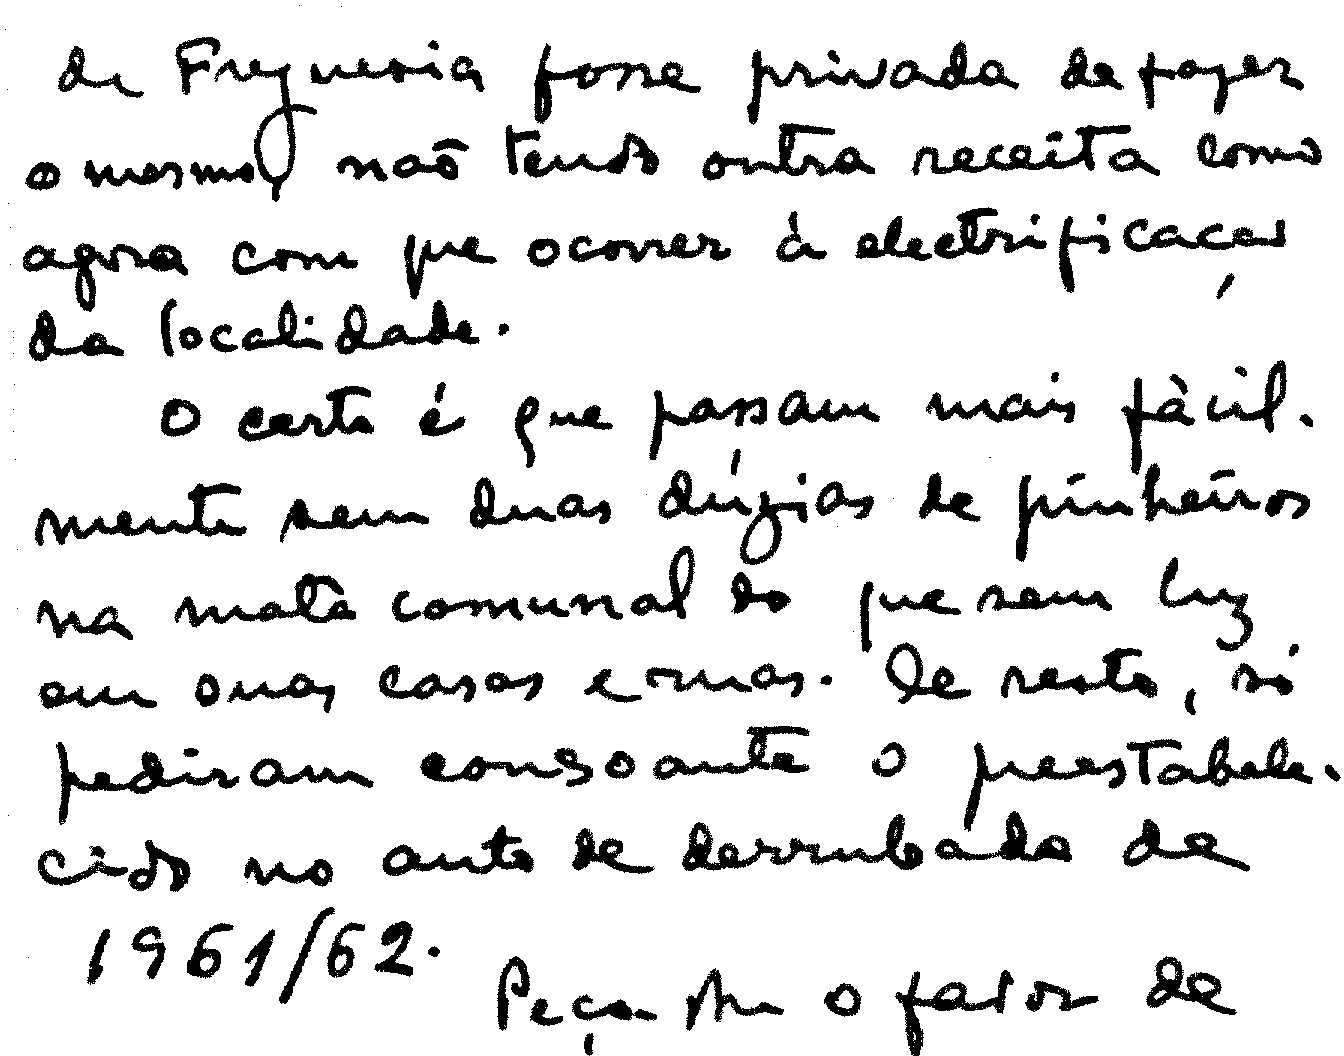 de Freguesia fosse privada de fazer
o mesmo, não tendo outra receita como
agora com que ocorrer à electrificação
da localidade.
O certo é que passam mais fàcil-
mente sem duas dúzias de pinheiros
na mata comunal do que sem luz
em suas casas e ruas. De resto, só
pediram consoante o preestabele-
cido no auto de derrubada de
1961/62.
Peço-lhe o favor de